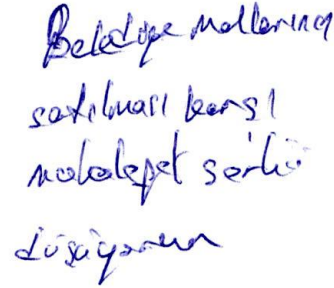 Belediye mallarının
satılması karşı
muhalefet şerhi
düşüyorum